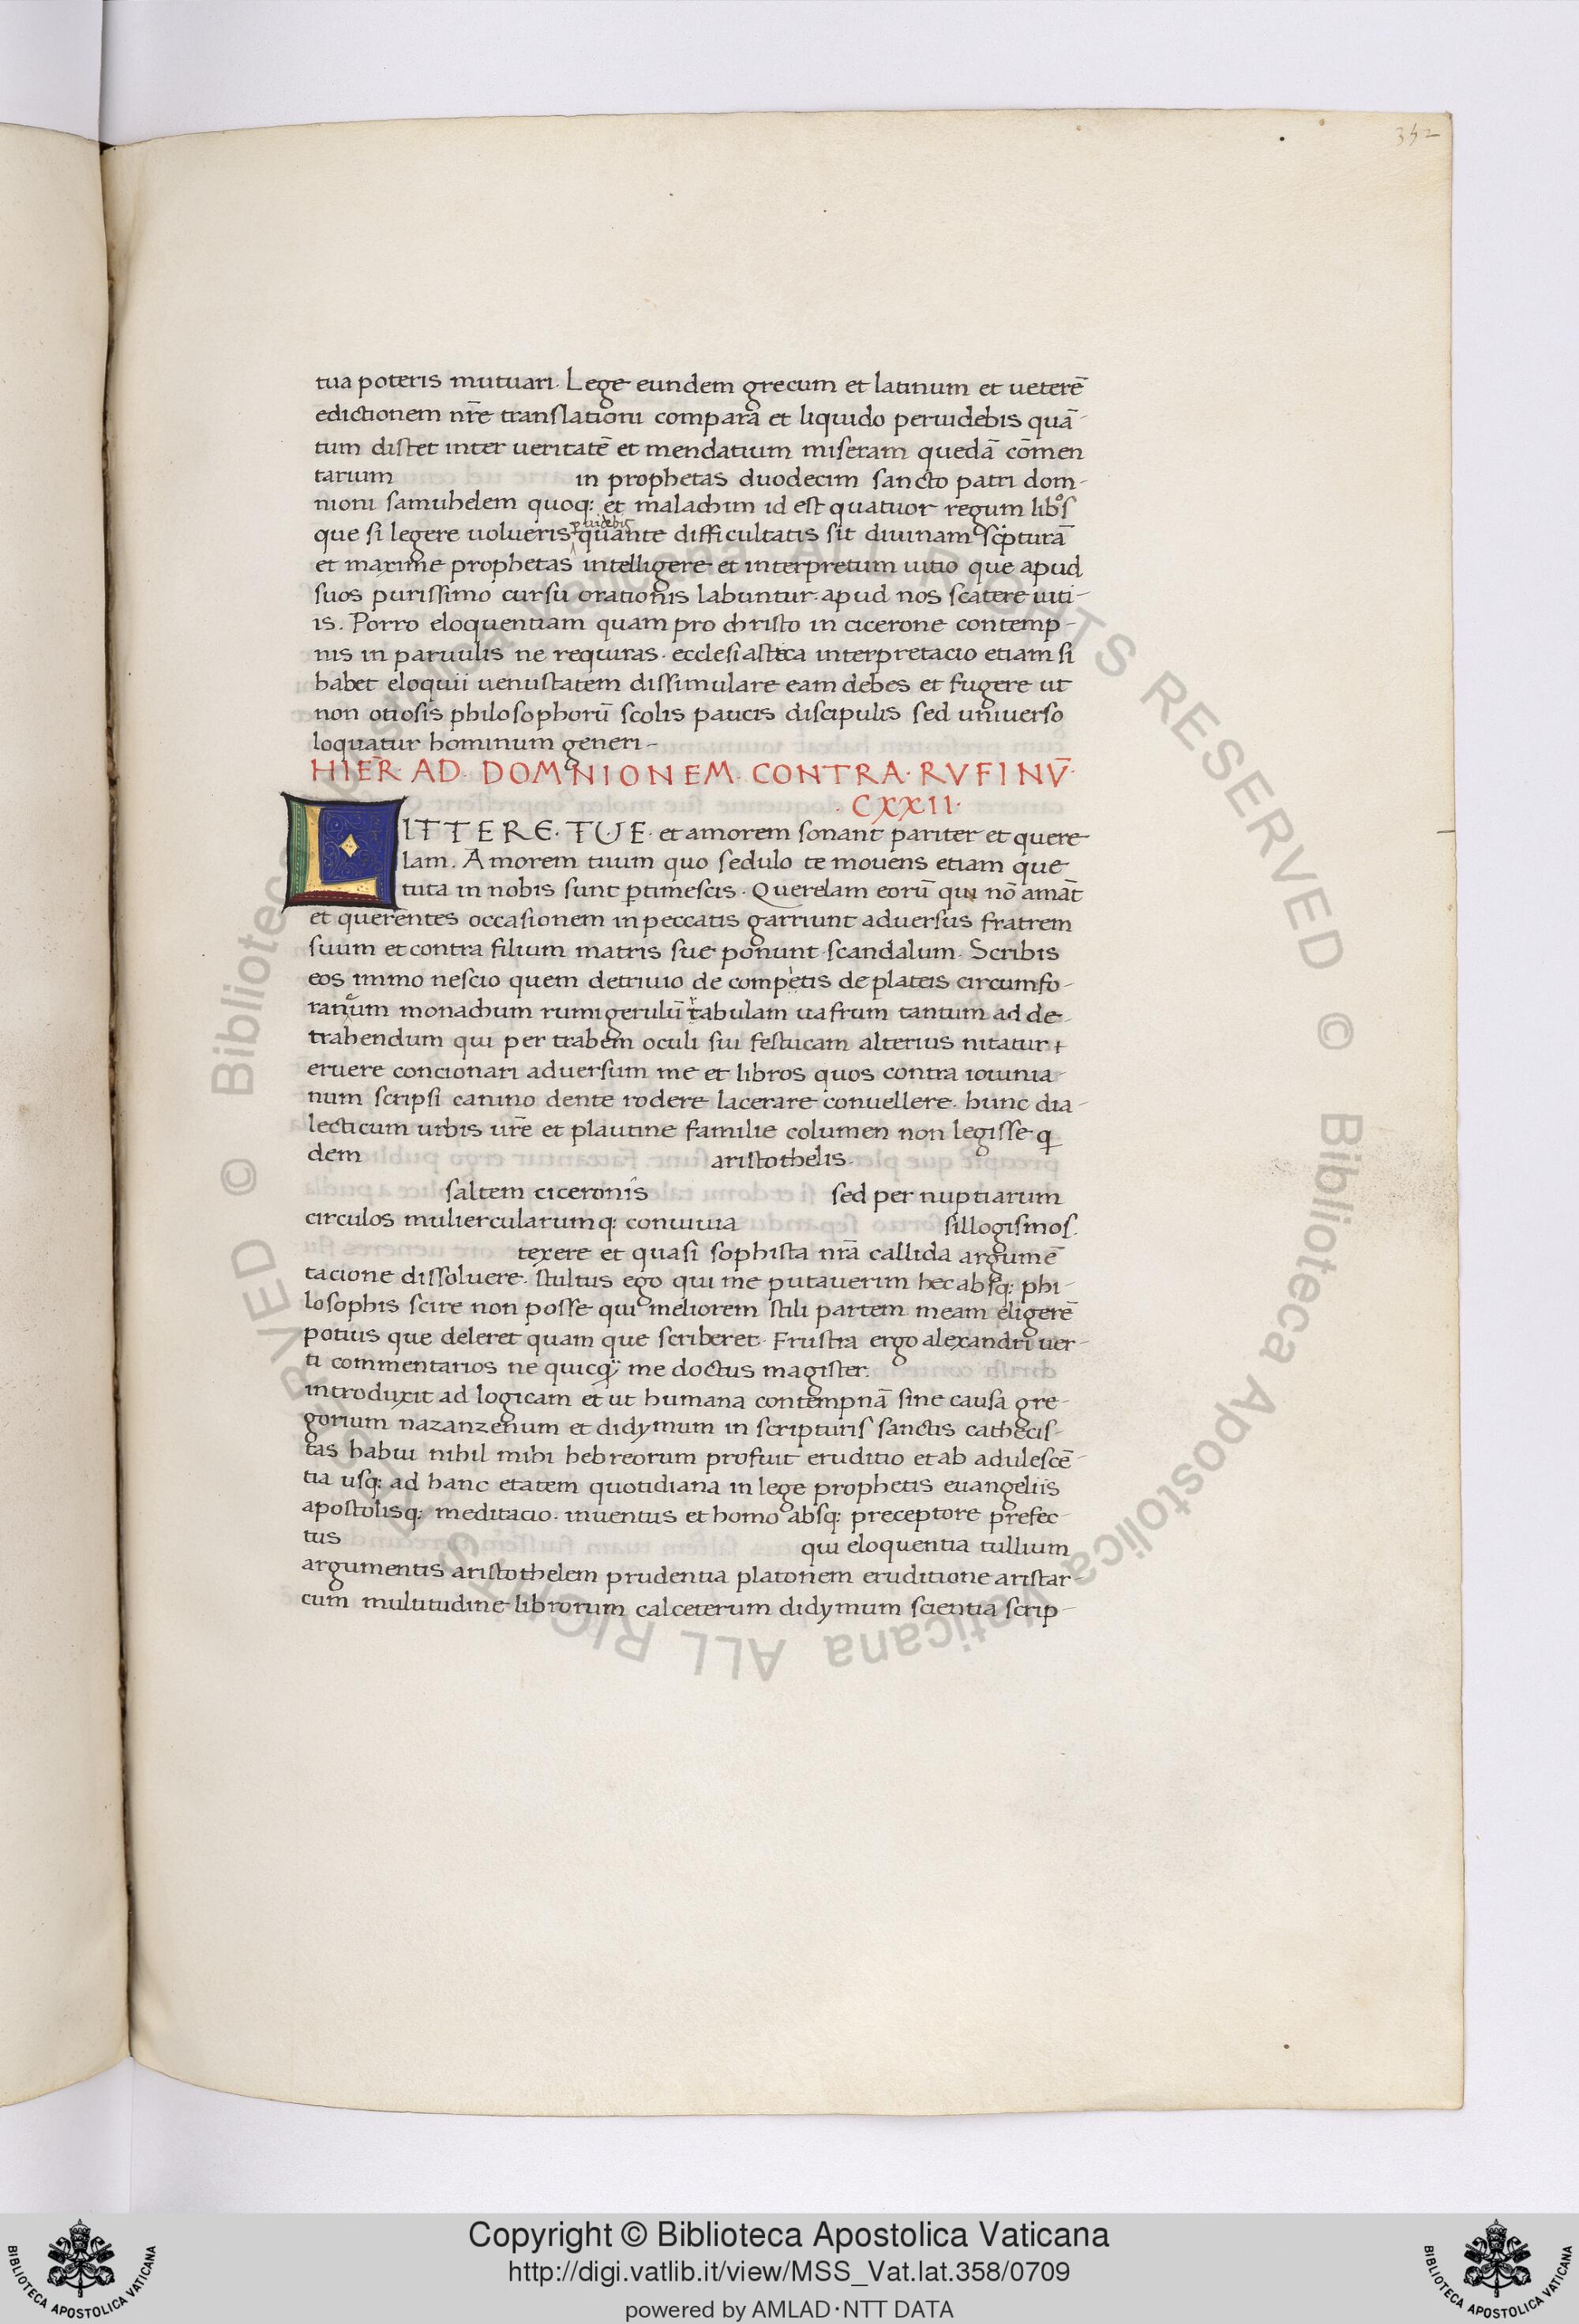 352
tua poteris mutuari. Lege eundem grecum et latinum et ueterē
edictionem nr̄e translationi comparā et liquido peruidebis quā-
tum distet inter ueritatē et mendatium miseram quedā cōmen
tarium in prophetas duodecim sancto patri dom-
nioni samuhelem quoq: et malachim id est quatuor regum libͦs
que si legere uolueris puidebis quante difficultatis sit diuinam scpturā
et maxime prophetas intelligere et interpretum uitio que apud
suos purissimo cursu orationis labuntur. apud nos scatere uiti-
is. Porro eloquentiam quam pro christo in cicerone contemp-
nis in paruulis ne requiras. ecclesiastica interpretacio etiam si
habet eloquii uenustatem dissimulare eam debes et fugere ut
non otiosis philosophorū scolis paucis discipulis sed uniuerso
loquatur hominum generi-
HIER̄ AD. DOMNIONEM. CONTRA. RVFINV̄.
. CXXII.
LITTERE. TUE. et amorem sonant pariter et quere
lam. Amorem tuum quo sedulo te mouens etiam que
tuta in nobis sunt ꝑtimescis. Querelam eorū qui nō amāt
et querentes occasionem in peccatis garriunt aduersus fratrem
suum et contra filium matris sue ponunt scandalum. Scribis
eos immo nescio quem detriuio de competis de plateis circumfo-
raneum monachum rumigerulū rabulam uafrum tantum ad de-
trahendum qui per trabem oculi sui festucam alterius nitatur
eruere concionari aduersum me et libros quos contra iouinia-
num scripsi canino dente rodere lacerare conuellere. hunc dia-
lecticum urbis ur̄e et plautine familie columen non legisse q
dem aristothelis.
saltem ciceronis sed per nuptiarum
circulos muliercularumq: conuiuia sillogismos.
texere et quasi sophista nr̄a callida argumē
tacione dissoluere. stultus ego qui me putauerim hec absq: phi-
losophis scire non posse qui meliorem stili partem meam eligerē
potius que deleret quam que scriberet. Frustra ergo alexandri uer-
ti commentarios ne quicq̈ me doctus magister.
introduxit ad logicam et ut humana contempnā sine causa gre-
gorium nazanzenum et didymum in scripturis sanctis cathecis-
tas habui nihil mihi hebreorum profuit eruditio et ab adulescē-
tia usq: ad hanc etatem quotidiana in lege prophetis euangeliis
apostolisq: meditacio. inuentus et homo absq: preceptore prefec-
tus qui eloquentia tullium
argumentis aristothelem prudentia platonem eruditione aristar-
cum multitudine librorum calceterum didymum scientia scrip-
Copyright © Biblioteca Apostolica Vaticana
http://digi.vatlib.it/view/MSS_Vat.lat.358/0709
powered by AMLAD·NTT DATA
BIBLIOTECA APOSTOLICA VATICANA
BIBLIOTECA APOSTOLICA VATICANA